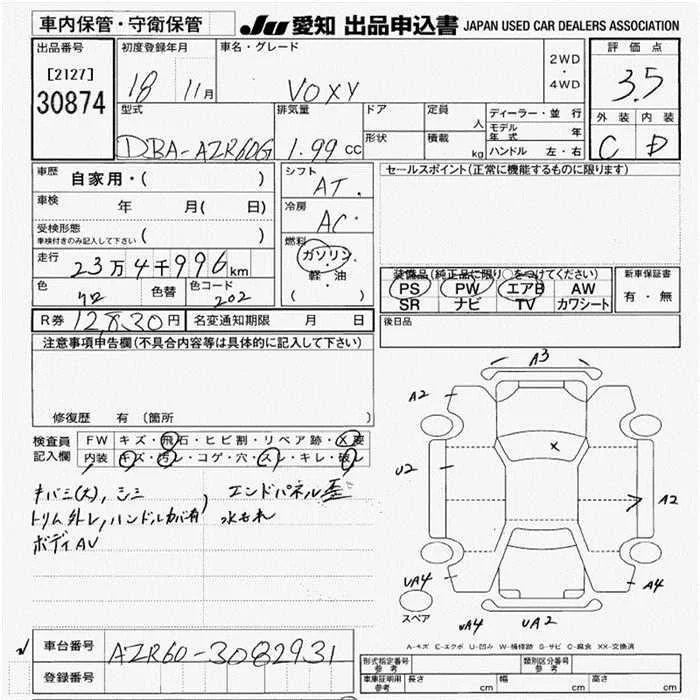 車内保管・守衛保管 JU 愛知 出品申込書 JAPAN USED CAR DEALERS ASSOCIATION
出品番号 初度登録年月 車名・グレード 2WD・4WD 評価点
[2127] 18 11月 VOXY 3.5
30874
型式 排気量 ドア 定員 人 ディーラー・並行 外装 内装
モデル年式 年
DBA-AZR60G 1.99 CC 形状 積載 kg ハンドル 左・右 C D
車歴 自家用・( ) シフト AT. セールスポイント(正常に機能するものに限ります)
車検 年 月( 日) 冷房 AC.
受検形態 ( )
車検付きのみ記入して下さい
燃料 ガソリン・軽・油 ( )
走行 23万4千996km
装備品(純正品に限り○をつけてください) 新車保証書
色 クロ 色替 色コード 202 PS PW エアB AW 有・無
SR ナビ TV カワシート
R券 12,830円 名変通知期限 月 日 後日品
注意事項申告欄(不具合内容等は具体的に記入して下さい)
修復歴 有 (箇所 )
検査員 FW キズ・飛石・ヒビ割・リペア跡・X要
記入欄 内装 キズ・汚レ・コゲ・穴・スレ・キレ・破レ
キバミ(大), シミ エンドパネル歪
トリム外レ, ハンドルカバー有 水もれ
ボディAU
A3
A2
X
U2
A2
UA4
A4
スペア
UA4 UA2
A-キズ E-エクボ U-凹み W-補修跡 S-サビ C-腐食 XX-交換済
車台番号 AZR60-3082931
形式指定番号 参考 類別区分番号 参考
登録番号 車庫証明用 参考 長さ cm 幅 cm 高さ cm